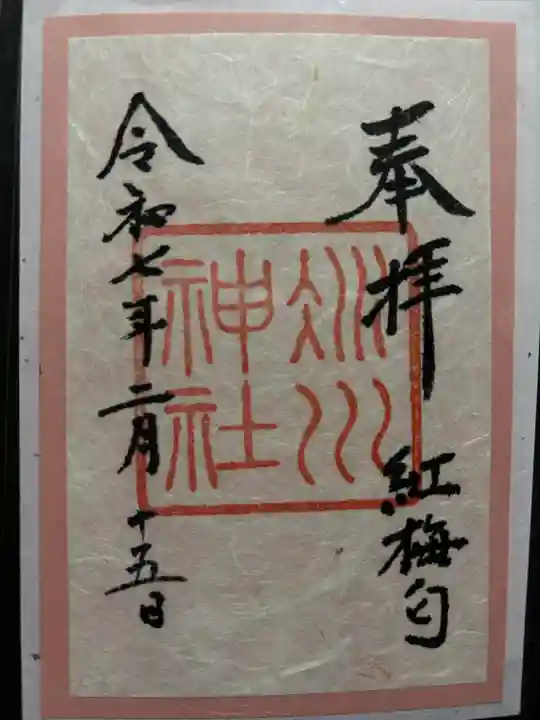 奉拝
紅梅匂
川
神社
令和七年二月十五日